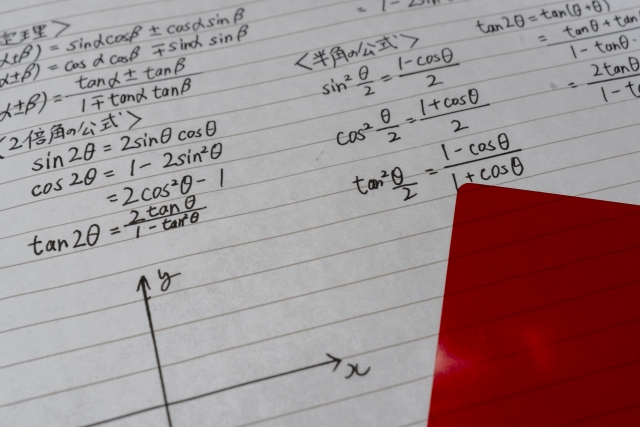 定理>
(α±β) = sinαcosβ ± cosαsinβ
(α±β) = cosαcosβ ∓ sinα sinβ
(α±β) = (tanα ± tanβ)/(1 ∓ tanα tanβ)
<2倍角の公式>
sin2θ = 2sinθcosθ
cos2θ = 1 - 2sin²θ
= 2cos²θ - 1
tan2θ = 2tanθ/(1 - tan²θ)
y
x
<半角の公式>
sin² θ/2 = (1 - cosθ)/2
cos² θ/2 = (1 + cosθ)/2
tan² θ/2 = (1 - cosθ)/(1 + cosθ)
tan2θ = tan(θ+θ)
= tanθ + tan
1 - tanθ ·
= 2tanθ
1 - t